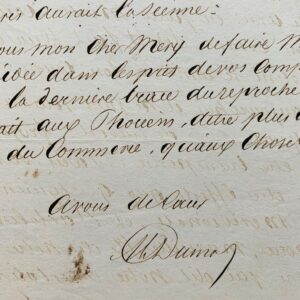 ris aurait la Seine:
vous mon cher Mery de faire
idée dans l'esprit de vos comp
la dernière trace du reproche
ait aux Phocéens, d'être plus
du Commerce, qu'aux chose
à vous de cœur
Al Dumas